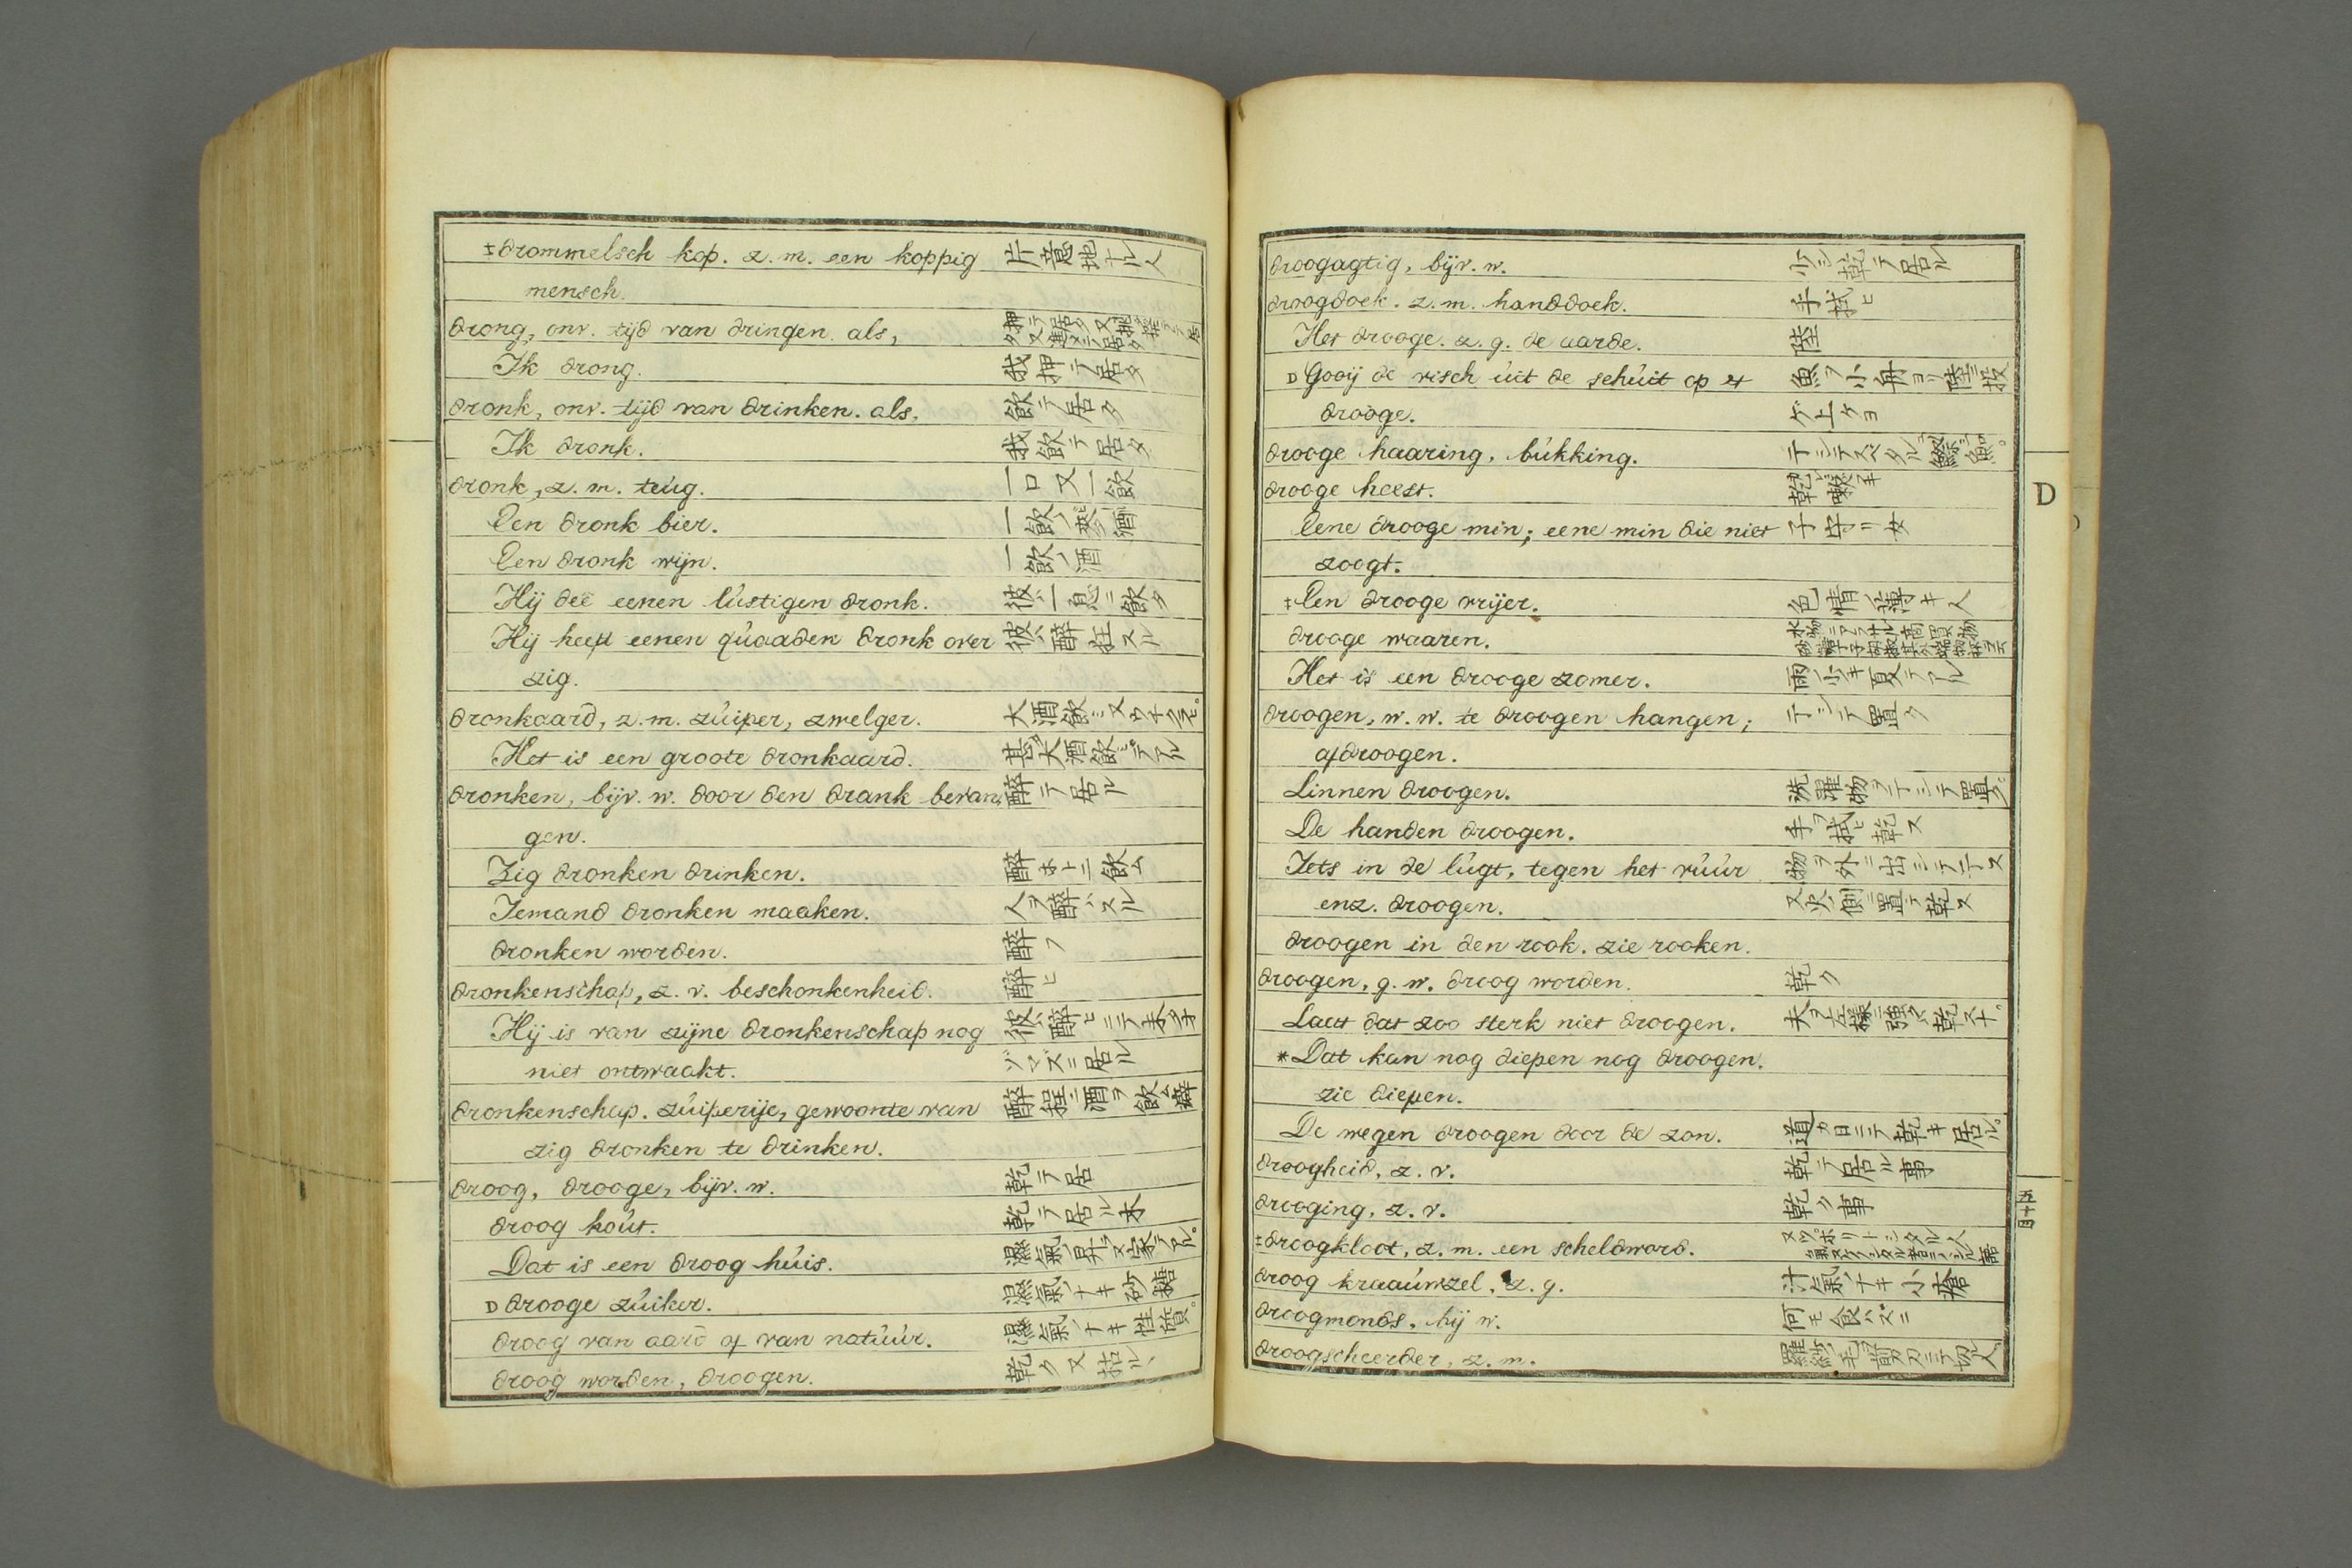 ‡drommelsch kop. z. m. een koppig 片意地ナル人
mensch.
drong, onv. tijd van dringen. als,
Ik drong. 我押テ居タ
dronk, onv. tijd van drinken. als, 飲テ居タ
Ik dronk. 我飲テ居タ
dronk, z. m. teúg. 一口又一飲
Een dronk bier.
Een dronk wijn. 一飲ノ酒
Hij deë eenen lústigen dronk. 彼ハ一息ニ飲タ
Hij heeft eenen qúaaden dronk over 彼ハ醉狂スル
zig.
dronkaard, z. m. zúiper, zwelger.
Het is een groote dronkaard. 甚大酒飲ミデアル
dronken, bijv. w. door den drank bevan, 醉テ居ル
gen.
Zig dronken drinken. 醉ホトニ飲ム
Iemand dronken maaken. 人ヲ醉ハスル
dronken worden. 醉フ
dronkenschap, z. v. beschonkenheid. 醉ヒ
Hij is van zijne dronkenschap nog
niet ontwaakt.
dronkenschap. zúiperije, gewoonte van 醉程ニ酒ヲ飲ム癖
zig dronken te drinken.
droog, drooge, bijv. w. 乾テ居
droog hoút. 乾テ居ル木
Dat is een droog húis.
D drooge zúiker. 濕氣ノナキ砂糖
droog van aard of van natúúr. 濕氣ノナキ性質。
droog worden, droogen.
droogagtig, bijv. w. 少シ乾テ居ル
droogdoek. z. m. handdoek. 手拭ヒ
Het drooge. z. g. de aarde. 陸
D Gooij de visch úit de schúit op 't 魚ヲ小舟ヨリ陸ニ投
drooge. ゲ上ケヨ
drooge haaring, búkking.
drooge heest. 乾嗽
Eene drooge min; eene min die niet 子守リ女
zoogt.
‡Een drooge vrijer. 色情ノ薄キ人
drooge waaren.
Het is een drooge zomer. 雨少キ夏テアル
droogen, w. w. te droogen hangen; 干シテ置ク
afdroogen.
Linnen droogen. 洗濯物ヲ干シテ置ク
De handen droogen. 手ヲ拭ヒ乾ス
Iets in de lúgt, tegen het vúúr 物ヲ外ニ出シテ干ス
enz. droogen. 又火ノ側ニ置テ乾ス
droogen in den rook. zie rooken.
droogen, g. w. droog worden. 乾ク
Laat dat zoo sterk niet droogen.
*Dat kan nog diepen nog droogen.
zie diepen.
De wegen droogen door de zon. 道カ日ニテ乾キ居ル。
droogheid, z. v. 乾テ居ル事
drooging, z. v. 乾ク事
‡droogkloot, z. m. een scheldword.
droog kraaúwzel, z. g. 汁氣ノナキ小瘡
droogmonds, bij w. 何モ食ハズニ
droogscheerder, z. m.
D
五十四